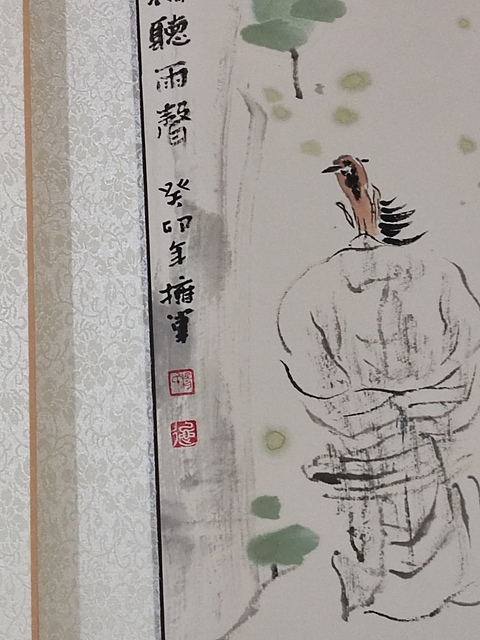 聽雨聲 癸卯年擁軍